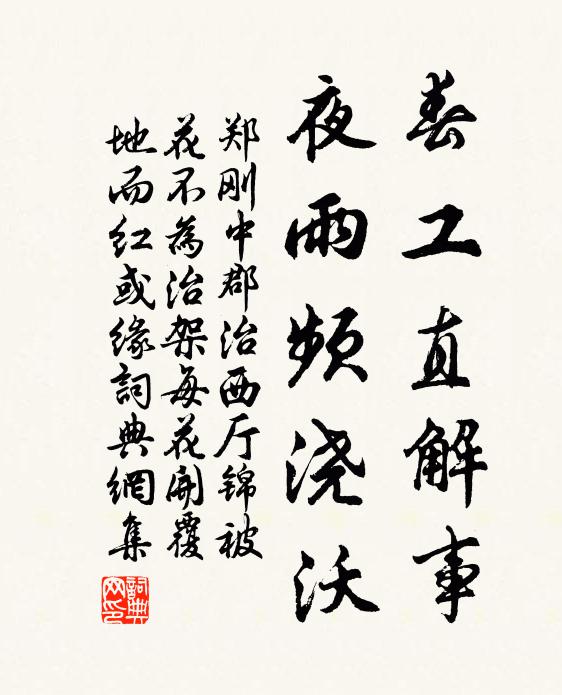 春工直解事
夜雨频浇沃
郑刚中郡治西厅锦被
花不為治架每花開覆
地而红或缘詞典網集
詞典
网印